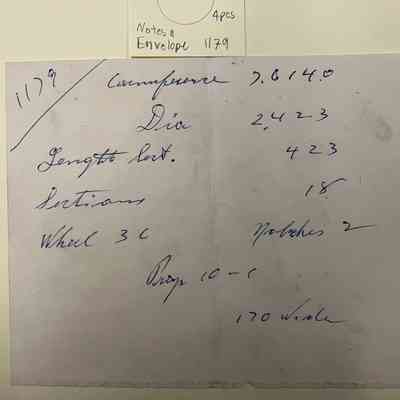 4pcs
Notes &
Envelope 1179
1179
Circumference 7.6140
Dia 2.423
Length Sect. .423
Sections 18
Wheel 36 Notches 2
10-1
170 Wide